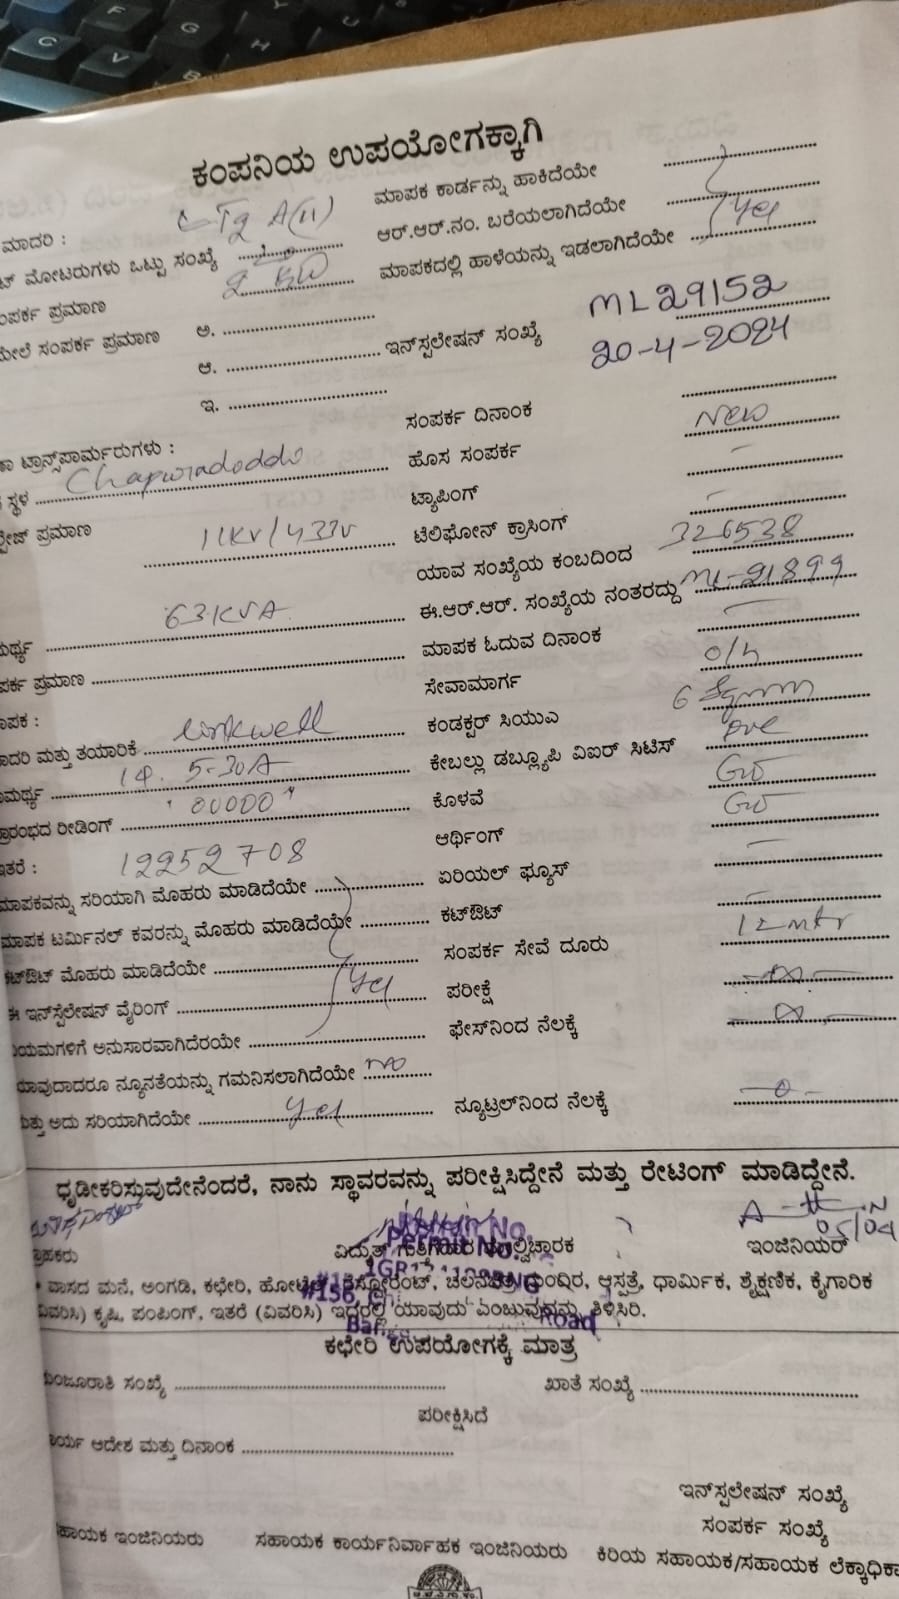 ಕಂಪನಿಯ ಉಪಯೋಗಕ್ಕಾಗಿ
ಮಾದರಿ : LTg A(11) ಮಾಪಕ ಕಾರ್ಡನ್ನು ಹಾಕಿದೆಯೇ
ಟ್ ಮೋಟರುಗಳು ಒಟ್ಟು ಸಂಖ್ಯೆ ಆರ್.ಆರ್.ನಂ. ಬರೆಯಲಾಗಿದೆಯೇ Yes
ಪರ್ಕ ಪ್ರಮಾಣ 2 KW ಮಾಪಕದಲ್ಲಿ ಹಾಳೆಯನ್ನು ಇಡಲಾಗಿದೆಯೇ
ಮೇಲೆ ಸಂಪರ್ಕ ಪ್ರಮಾಣ ಅ. ಇನ್‌ಸ್ಟಲೇಷನ್ ಸಂಖ್ಯೆ ML29152
ಆ. 20-4-2024
ಇ.
ಸಂಪರ್ಕ ದಿನಾಂಕ
ಟ್ರಾನ್ಸ್‌ಫಾರ್ಮರುಗಳು : ಹೊಸ ಸಂಪರ್ಕ New
ಸ್ಥಳ ಟ್ಯಾಪಿಂಗ್ -
ಪ್ರಮಾಣ 11KV/433V ಟೆಲಿಫೋನ್ ಕ್ರಾಸಿಂಗ್ -
ಯಾವ ಸಂಖ್ಯೆಯ ಕಂಬದಿಂದ 326538
63KVA ಈ.ಆರ್.ಆರ್. ಸಂಖ್ಯೆಯ ನಂತರದ್ದು ML-21899
ಪರ್ಕ ಪ್ರಮಾಣ ಮಾಪಕ ಓದುವ ದಿನಾಂಕ -
ಾಪಕ : ಸೇವಾಮಾರ್ಗ o/h
ಾದರಿ ಮತ್ತು ತಯಾರಿಕೆ Linkwell ಕಂಡಕ್ಟರ್ ಸಿಯುಎ 6 Sqmm
ಾಮರ್ಥ್ಯ 1φ. 5-30A ಕೇಬಲ್ಲು ಡಬ್ಲ್ಯೂಪಿ ವಿಐಆರ್ ಸಿಟಿಸ್ pvc
್ರಾರಂಭದ ರೀಡಿಂಗ್ "00000" ಕೊಳವೆ
ಇತರೆ : 12252708 ಆರ್ಥಿಂಗ್
ಮಾಪಕವನ್ನು ಸರಿಯಾಗಿ ಮೊಹರು ಮಾಡಿದೆಯೇ ಏರಿಯಲ್ ಫ್ಯೂಸ್ -
ಮಾಪಕ ಟರ್ಮಿನಲ್ ಕವರನ್ನು ಮೊಹರು ಮಾಡಿದೆಯೇ ಕಟ್‌ಔಟ್ -
ಕಟ್‌ಔಟ್ ಮೊಹರು ಮಾಡಿದೆಯೇ ಸಂಪರ್ಕ ಸೇವೆ ದೂರು 12 mtr
ಈ ಇನ್‌ಸ್ಟಲೇಷನ್ ವೈರಿಂಗ್ Yes ಪರೀಕ್ಷೆ -∞-
ಯಮಗಳಿಗೆ ಅನುಸಾರವಾಗಿದೆರಯೇ ಫೇಸ್‌ನಿಂದ ನೆಲಕ್ಕೆ -∞-
ಯಾವುದಾದರೂ ನ್ಯೂನತೆಯನ್ನು ಗಮನಿಸಲಾಗಿದೆಯೇ no
ಮತ್ತು ಅದು ಸರಿಯಾಗಿದೆಯೇ Yes ನ್ಯೂಟ್ರಲ್‌ನಿಂದ ನೆಲಕ್ಕೆ -0-
ಧೃಡೀಕರಿಸ್ತುವುದೇನೆಂದರೆ, ನಾನು ಸ್ಥಾವರವನ್ನು ಪರೀಕ್ಷಿಸಿದ್ದೇನೆ ಮತ್ತು ರೇಟಿಂಗ್ ಮಾಡಿದ್ದೇನೆ.
05/04
ಗ್ರಾಹಕರು ವಿದ್ಯುತ್ ಗುತ್ತಿಗೆದಾರ ಇಂಜಿನಿಯರ್
Permit No.
* ವಾಸದ ಮನೆ, ಅಂಗಡಿ, ಕಛೇರಿ, ಹೋಟೆಲ್, ರೆಸ್ಟೋರೆಂಟ್, ಚಲನಚಿತ್ರ ಮಂದಿರ, ಆಸ್ಪತ್ರೆ, ಧಾರ್ಮಿಕ, ಶೈಕ್ಷಣಿಕ, ಕೈಗಾರಿಕ
#156
(ವಿವರಿಸಿ) ಕೃಷಿ, ಪಂಪಿಂಗ್, ಇತರೆ (ವಿವರಿಸಿ) ಇದರಲ್ಲಿ ಯಾವುದು ಎಂಬುವುದನ್ನು ತಿಳಿಸಿರಿ.
Road
ಕಛೇರಿ ಉಪಯೋಗಕ್ಕೆ ಮಾತ್ರ
ಮಂಜೂರಾತಿ ಸಂಖ್ಯೆ ಖಾತೆ ಸಂಖ್ಯೆ
ಪರೀಕ್ಷಿಸಿದೆ
ಾರ್ಯ ಆದೇಶ ಮತ್ತು ದಿನಾಂಕ
ಇನ್‌ಸ್ಟಲೇಷನ್ ಸಂಖ್ಯೆ
ಸಂಪರ್ಕ ಸಂಖ್ಯೆ
ಹಾಯಕ ಇಂಜಿನಿಯರು ಸಹಾಯಕ ಕಾರ್ಯನಿರ್ವಾಹಕ ಇಂಜಿನಿಯರು ಕಿರಿಯ ಸಹಾಯಕ/ಸಹಾಯಕ ಲೆಕ್ಕಾಧಿಕಾ